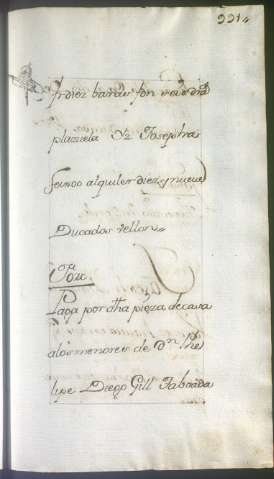 2214
y diez baras son
plazuela de Josepha
seuros alquiler diez y nueve
Ducados vellon
Foro
Paga por dha pieza de casa
alos menores de Dn. Phe
lipe Diego Gill Taboada